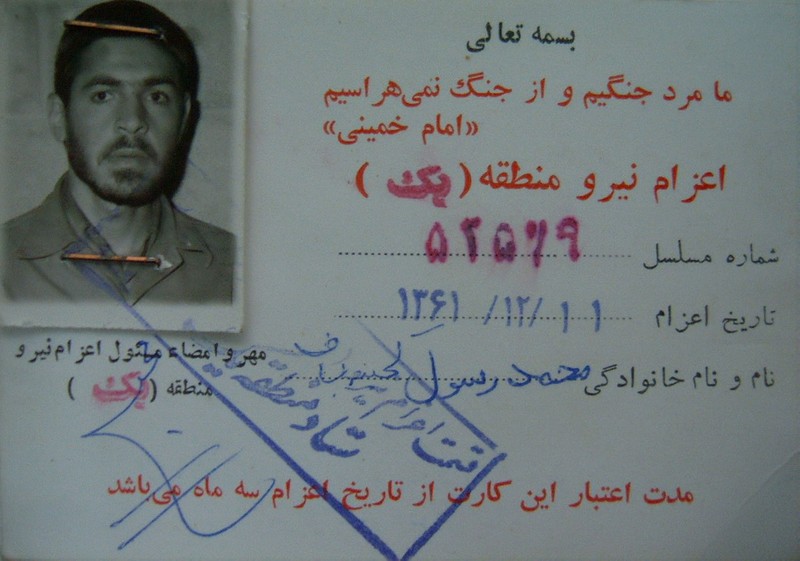 بسمه تعالی
ما مرد جنگیم و از جنگ نمی‌هراسیم
«امام خمینی»
اعزام نیرو منطقه ( یک )
شماره مسلسل ۵۲۵۷۹
تاریخ اعزام ۱۳۶۱/۱۲/۱۱
نام و نام خانوادگی محمد رسول
مهر و امضاء مسئول اعزام نیرو
منطقه ( یک )
قسمت اعزام نیرو
ستاد منطقه
مدت اعتبار این کارت از تاریخ اعزام سه ماه می‌باشد